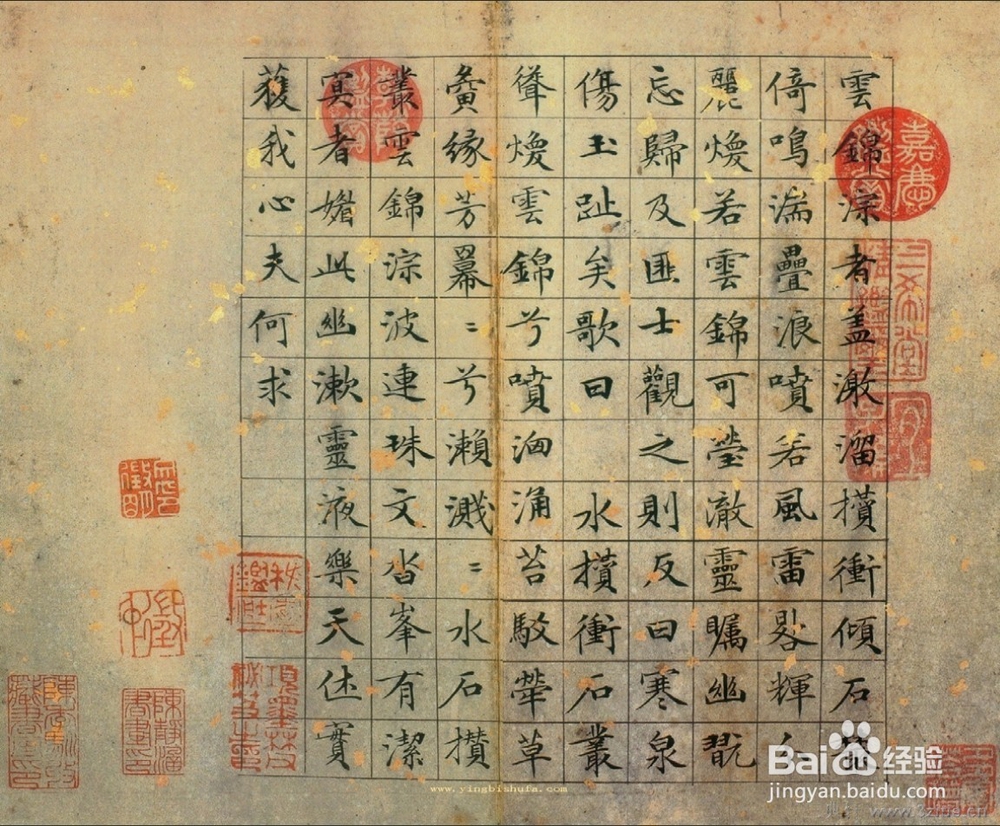 雲錦淙者盖激溜攢衝傾石
倚鳴湍疊浪噴若風雷輝
麗煥若雲錦可瑩澈靈矚幽翫
忘歸及匪士觀之則反曰寒泉
傷玉趾矣歌曰 水攢衝石叢
聳煥雲錦兮噴洶涌苔駁犖草
夤緣芳冪〻兮瀨濺〻水石攢
叢雲錦淙波連珠文沓峯有潔
冥者媚此幽漱靈液樂天休實
獲我心夫何求
嘉慶御覽之寶
三希堂精鑑璽
宜子孫
www.yingbishufa.com
Baidu经验
jingyan.baidu.com